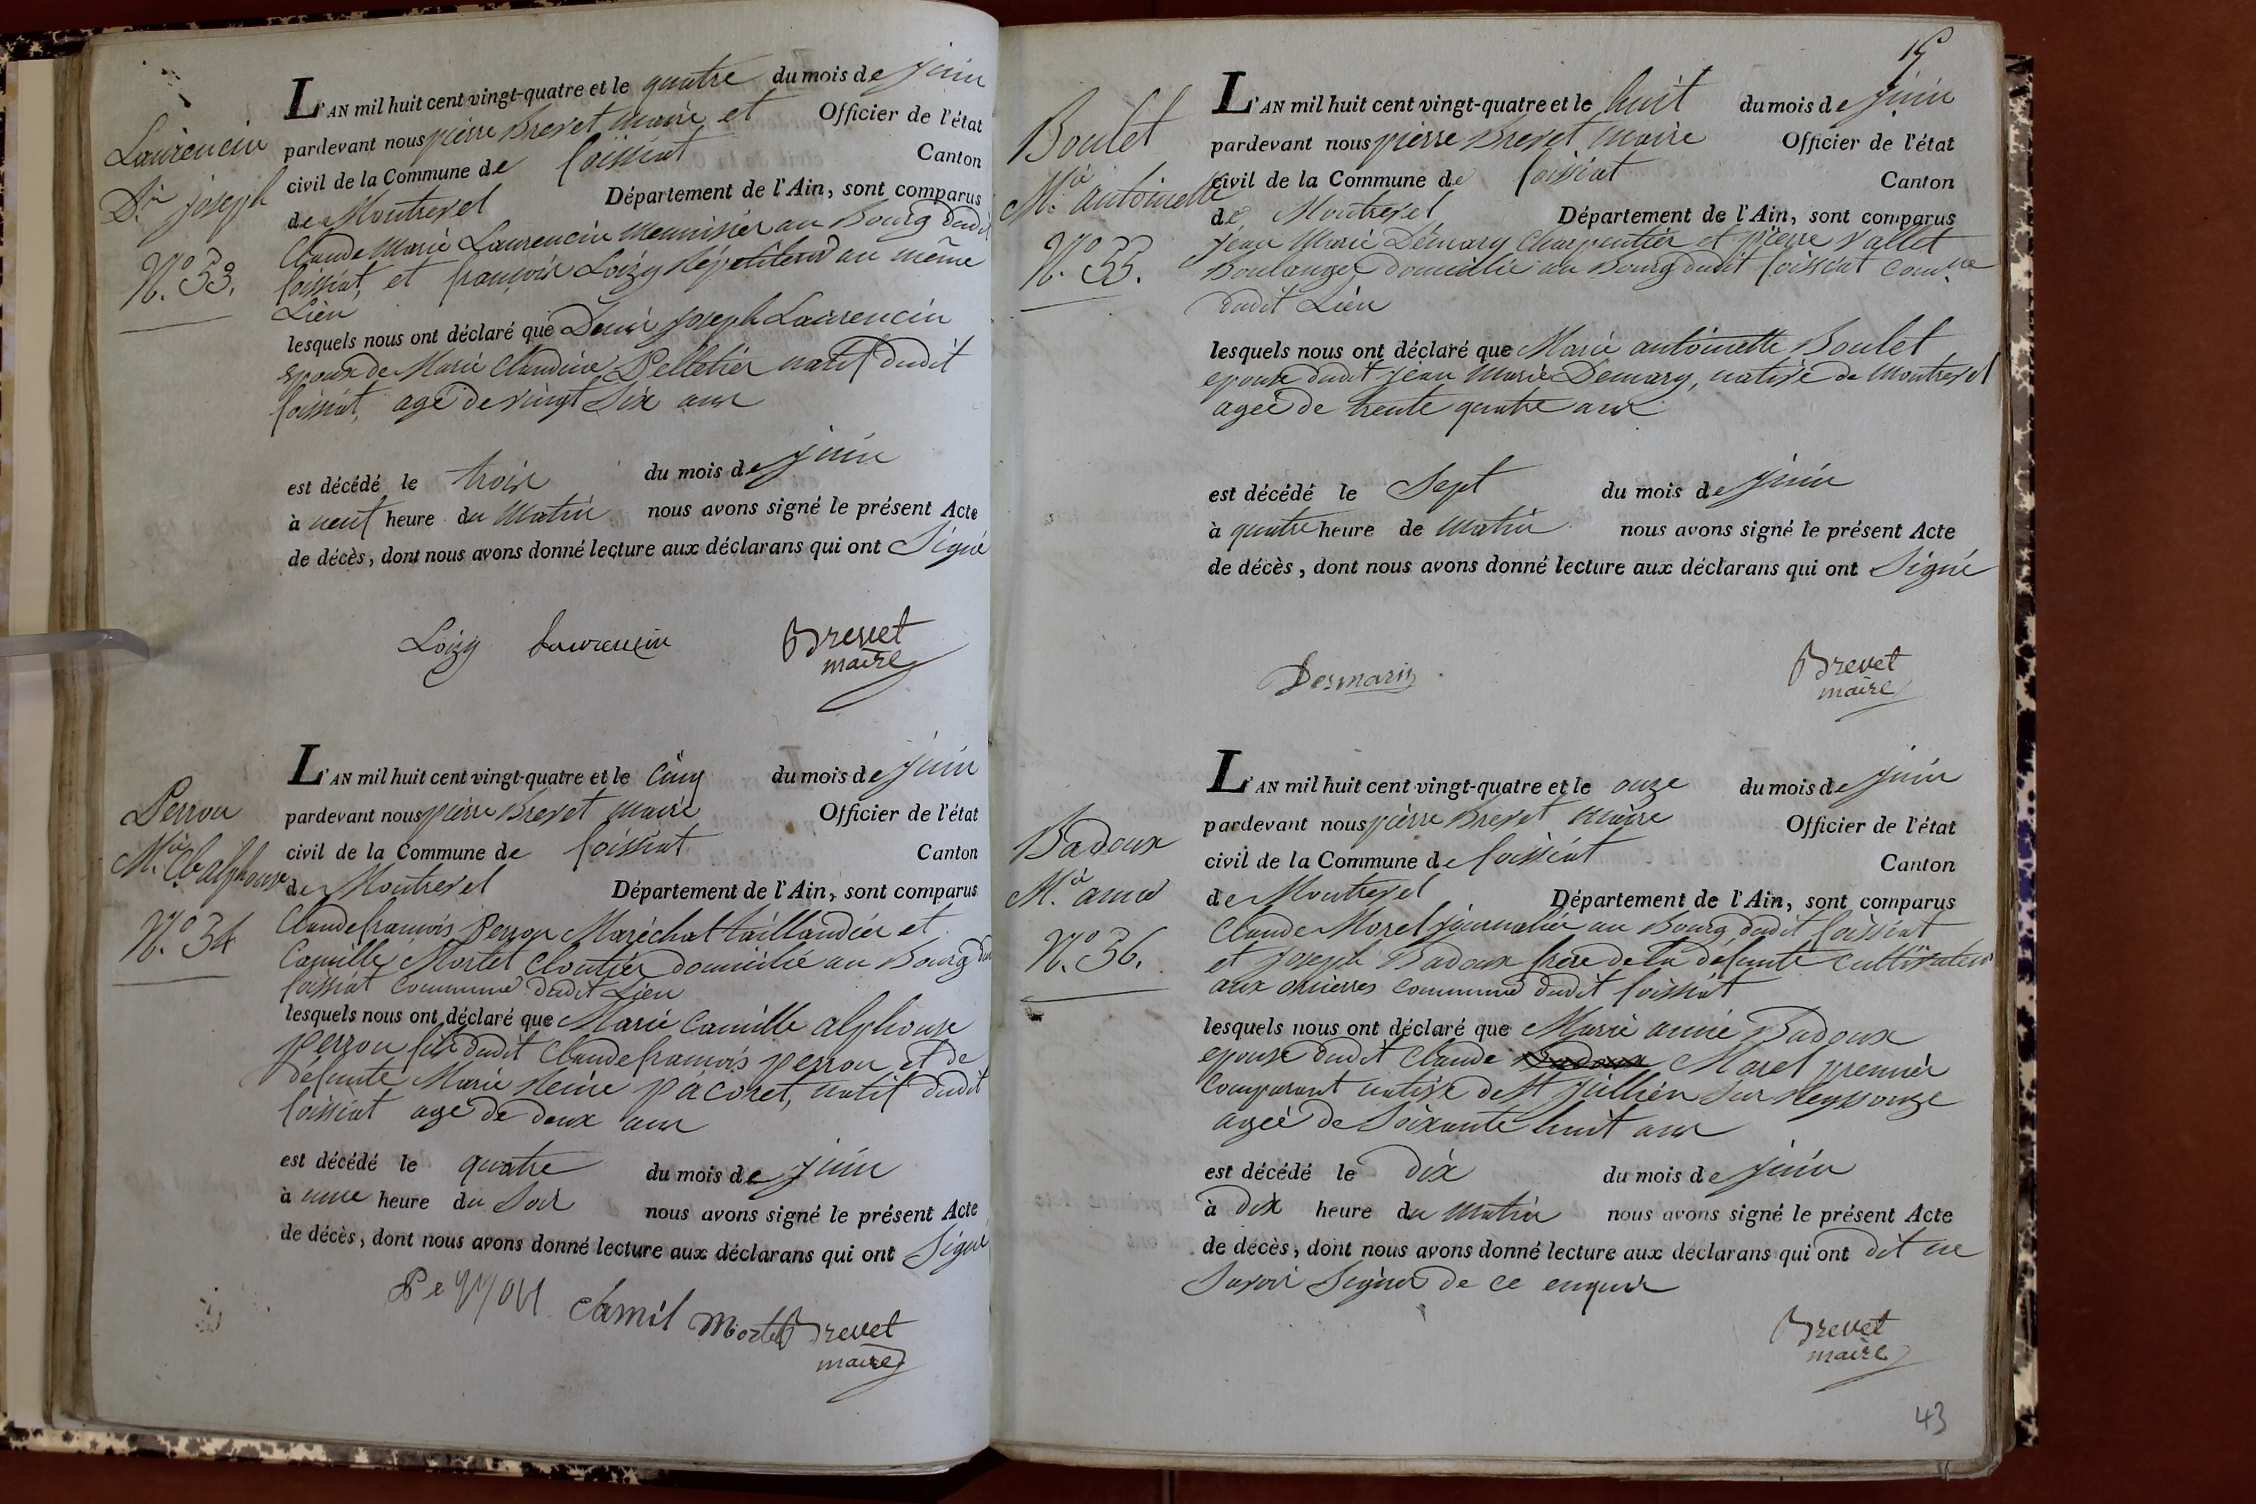 Laurencin
Dis joseph
N.o 33.
L'AN mil huit cent vingt-quatre et le quatre du mois de juin
pardevant nous pierre Brevet maire et Officier de l'état
civil de la Commune de foissiat Canton
de Montrevel Département de l'Ain, sont comparus
Claude Marie Laurencin Menuisier au Bourg dudit
foissiat, et françois Loizy au même
Lieu
lesquels nous ont déclaré que Denis joseph Laurencin
epoux de Marie Claudine Pelletier natif dudit
foissiat, age de vingt Six ans
est décédé le trois du mois de juin
à neuf heure du Matin nous avons signé le présent Acte
de décès, dont nous avons donné lecture aux déclarans qui ont Signé
Loizy Laurencin Brevet
maire
Perron
M.ie C.le alphonse
N.o 34
L'AN mil huit cent vingt-quatre et le Cinq du mois de juin
pardevant nous pierre Brevet Maire Officier de l'état
civil de la Commune de foissiat Canton
de Montrevel Département de l'Ain, sont comparus
Claude françois Perron Maréchal taillandier et
Camille Mortel Cloutier domicilié au Bourg du
foissiat Commune dudit Lieu
lesquels nous ont déclaré que Marie Camille alphonse
perron fils dudit Claude françois perron et de
defunte Marie Reine pacoret, natif dudit
foissiat age de deux ans
est décédé le quatre du mois de juin
à une heure du Soir nous avons signé le présent Acte
de décès, dont nous avons donné lecture aux déclarans qui ont Signé
Perron Camil Mortel Brevet
maire
15
Boulet
M.ie antoinette
N.o 35.
L'AN mil huit cent vingt-quatre et le huit du mois de juin
pardevant nous pierre Brevet Maire Officier de l'état
civil de la Commune de foissiat Canton
de Montrevel Département de l'Ain, sont comparus
jean Marie Demary Charpentier et pierre Vallet
Boulanger domicilié au Bourg dudit foissiat Com.ne
dudit Lieu
lesquels nous ont déclaré que Marie antoinette Boulet
epouse dudit jean Marie Demary, native de Montrevel
agée de trente quatre ans
est décédé le Sept du mois de juin
à quatre heure de Matin nous avons signé le présent Acte
de décès, dont nous avons donné lecture aux déclarans qui ont Signé
Desmaris Brevet
maire
Badoux
M.ie anne
N.o 36.
L'AN mil huit cent vingt-quatre et le onze du mois de juin
pardevant nous pierre Brevet Maire Officier de l'état
civil de la Commune de foissiat Canton
de Montrevel Département de l'Ain, sont comparus
Claude Morel journalier au Bourg dudit foissiat
et joseph Badoux frère de la defunte Cultivateur
aux commune dudit foissiat
lesquels nous ont déclaré que Marie anne Badoux
epouse dudit Claude Badoux Morel premier
Comparant native de St jullien Sur Reyssouze
agée de Soixante huit ans
est décédé le dix du mois de juin
à dix heure du Matin nous avons signé le présent Acte
de décès, dont nous avons donné lecture aux déclarans qui ont dit ne
Savoir Signer de ce enquis
Brevet
maire
43